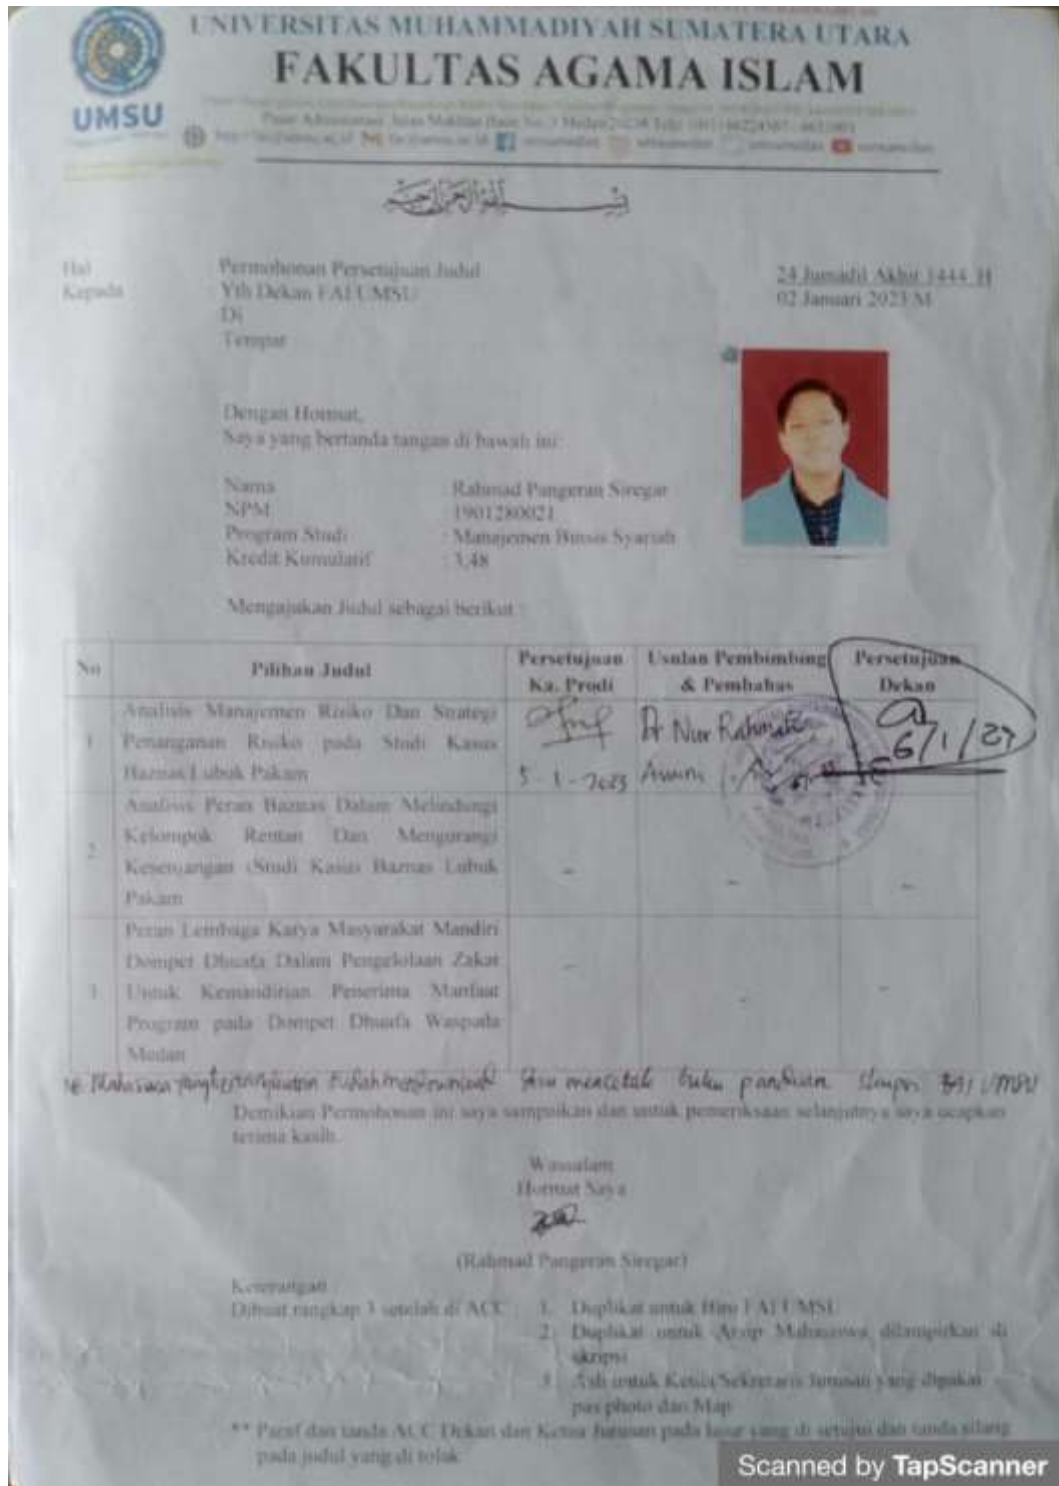 UNIVERSITAS MUHAMMADIYAH SUMATERA UTARA
FAKULTAS AGAMA ISLAM
UMSU
Hal Permohonan Persetujuan Judul 24 Jumadil Akhir 1444 H
Kepada Yth Dekan FAI UMSU 02 Januari 2023 M
Di
Tempat
Dengan Hormat,
Saya yang bertanda tangan di bawah ini
Nama : Rahmad Pangeran Siregar
NPM : 1901280021
Program Studi : Manajemen Bisnis Syariah
Kredit Kumulatif : 3,48
Mengajukan Judul sebagai berikut :
No Pilihan Judul Persetujuan Ka. Prodi Usulan Pembimbing & Pembahas Persetujuan Dekan
1 Analisis Manajemen Risiko Dan Strategi
Penanganan Risiko pada Studi Kasus
Baznas Lubuk Pakam
5-1-2023
Dr Nur Rahmah
Amini
6/1/23
2 Analisis Peran Baznas Dalam Melindungi
Kelompok Rentan Dan Mengurangi
Kesenjangan (Studi Kasus Baznas Lubuk
Pakam
3 Peran Lembaga Karya Masyarakat Mandiri
Dompet Dhuafa Dalam Pengelolaan Zakat
Untuk Kemandirian Penerima Manfaat
Program pada Dompet Dhuafa Waspada
Medan
mencetak buku panduan FAI UMSU
Demikian Permohonan ini saya sampaikan dan untuk pemeriksaan selanjutnya saya ucapkan
terima kasih.
Wassalam
Hormat Saya
(Rahmad Pangeran Siregar)
Keterangan
Dibuat rangkap 3 setelah di ACC : 1. Duplikat untuk Biro FAI UMSU
2. Duplikat untuk Arsip Mahasiswa dilampirkan di
skripsi
3. Asli untuk Ketua/Sekretaris Jurusan yang dipakai
pas photo dan Map
** Paraf dan tanda ACC Dekan dan Ketua Jurusan pada lajur yang di setujui dan tanda silang
pada judul yang di tolak
Scanned by TapScanner